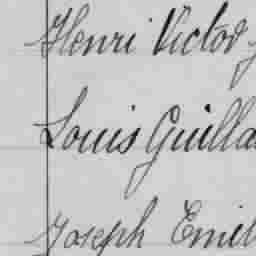 Henri Victor
Louis Guilla
Joseph Emil